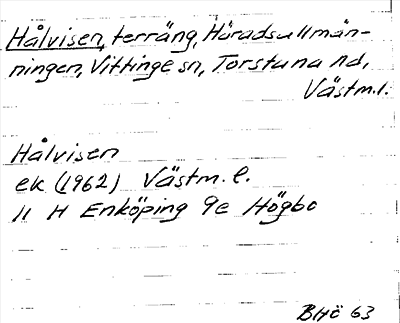 Hålvisen, terräng, Häradsallmän-
ningen, Vittinge sn, Torstuna hd,
Västm.l.
Hålvisen
ek (1962) Västm. l.
11 H Enköping 9e Högbo
BHÖ 63